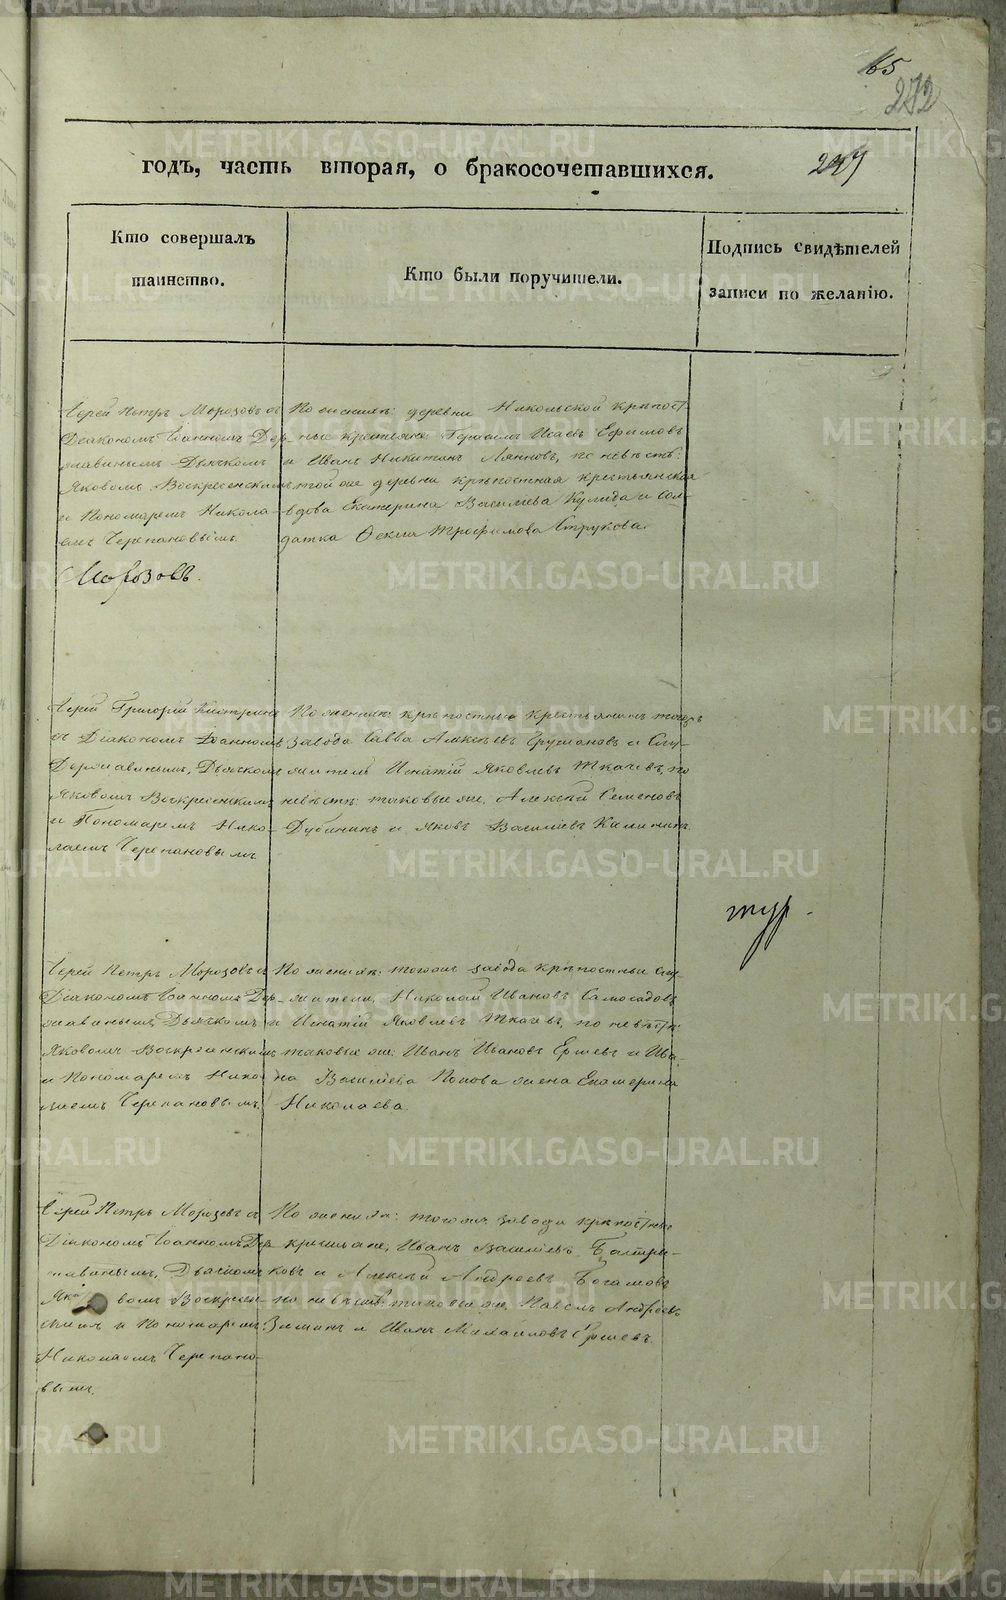 65
272
годъ, часть вторая, о бракосочетавшихся.
247
Кто совершалъ
таинство.
Кто были поручители.
Подпись свидѣтелей
записи по желанію.
Іерей Петръ Морозовъ съ
Діакономъ Іоанномъ Дер-
жавинымъ, Дьячкомъ
Яковомъ Воскресенскимъ
и Пономаремъ Никола-
емъ Черепановымъ.
Морозовъ.
По женихѣ: деревни Никольской крѣпост-
ные крестьяне: Исаевъ Ефимовъ
и Иванъ Никитинъ по невѣстѣ:
той же деревни крѣпостная крестьянская
вдова Екатерина Васильева и Сол-
датка Трофимова Струкова.
Іерей Григорій
съ Діакономъ Іоанномъ
Державинымъ, Дьячкомъ
Яковомъ Воскресенскимъ
и Пономаремъ Нико-
лаемъ Черепановымъ
По женихѣ: крѣпостные крестьянинъ тогоже
завода Савва Алексѣевъ и Слу-
житель Игнатій Яковлевъ Ткачевъ, по
невѣстѣ: таковые же, Алексѣй Семеновъ
Дубининъ и Яковъ Васильевъ Калининъ.
тур.
Іерей Петръ Морозовъ съ
Діакономъ Іоанномъ Дер-
жавинымъ, Дьячкомъ
Яковомъ Воскресенскимъ
и Пономаремъ Нико-
лаемъ Черепановымъ.
По женихѣ: тогоже завода крѣпостные слу-
жители, Николай Ивановъ Самосадовъ
и Игнатій Яковлевъ Ткачевъ, по невѣстѣ:
таковые же: Иванъ Ивановъ Ершевъ и Ива-
на Васильева Попова жена Екатерина
Николаева.
Іерей Петръ Морозовъ съ
Діакономъ Іоанномъ Дер-
жавинымъ, Дьячкомъ
Яковомъ Воскресен-
скимъ и Пономаремъ
Николаемъ Черепано-
вымъ.
По женихѣ: тогоже завода крѣпостные
крестьяне, Иванъ Васильевъ Бастры-
ковъ и Алексѣй Андреевъ Богатовъ
по невѣстѣ: таковые же, Павелъ Андреевъ
Зиминъ и Иванъ Михайловъ Ершевъ.
METRIKI.GASO-URAL.RU